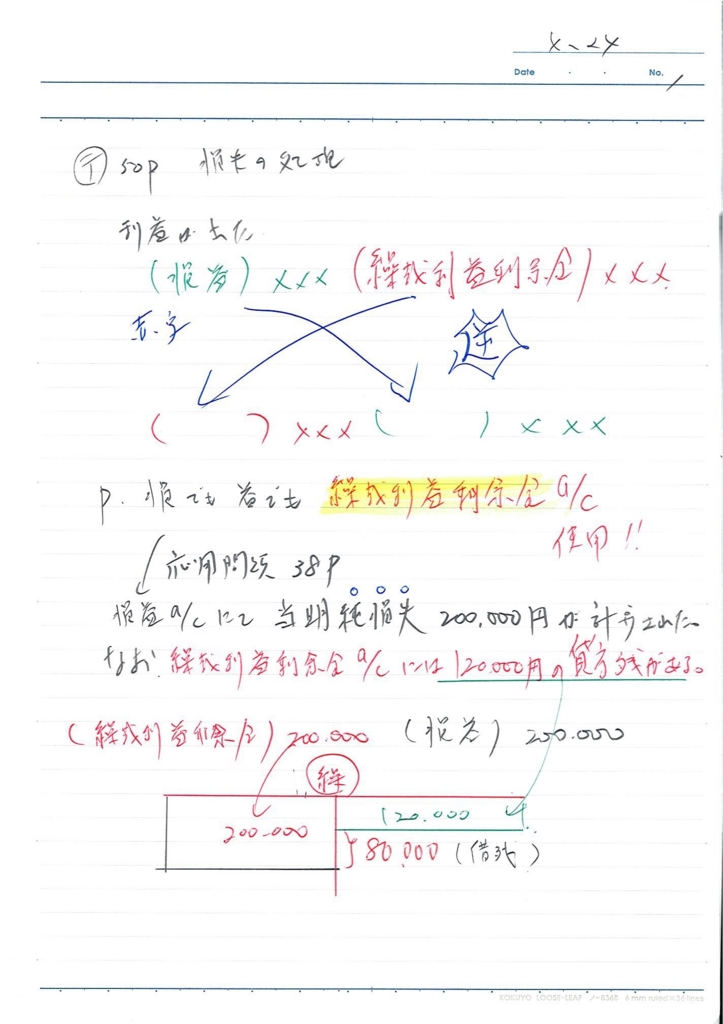 X-24
Date . . No. 1
㋢ 50p 損失の処理
利益が出た
(損益) xxx (繰越利益剰余金) xxx
赤字
逆
( ) xxx ( ) xxx
P. 損でも益でも 繰越利益剰余金 a/c
使用!!
応用問題 38P
損益a/cにて 当期純損失 200,000円が計算された
なお 繰越利益剰余金 a/cには120,000円の貸方残がある。
(繰越利益剰余金) 200.000 (損益) 200.000
繰
200.000 120.000
80,000 (借残)
KOKUYO LOOSE-LEAF ノ-836B 6 mm ruled×36 lines